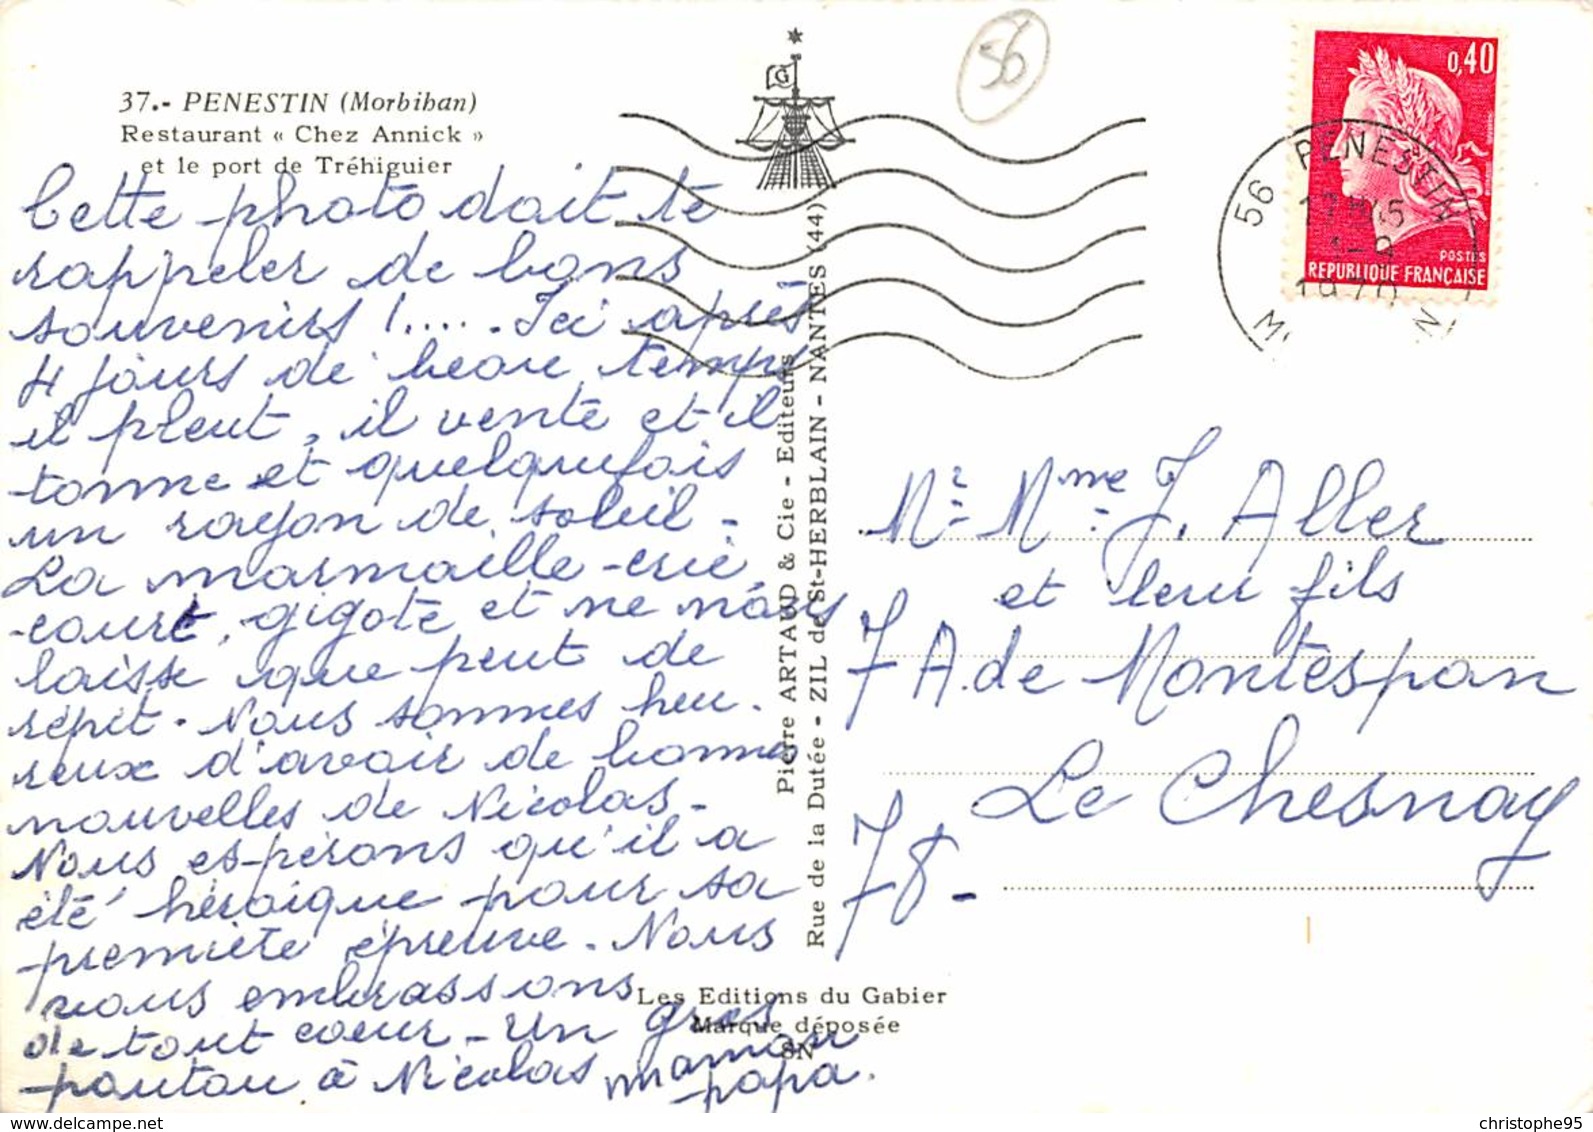 37.- PENESTIN (Morbihan)
Restaurant « Chez Annick »
et le port de Tréhiguier
Cette photo doit te
rappeler de bons
souvenirs !..... Ici après
4 jours de beau temps
il pleut, il vente et il
tonne et quelquefois
un rayon de soleil -
La marmaille crie,
court, gigote et ne nous
laisse que peut de
répit. Nous sommes heu.
reux d'avoir de bonnes
nouvelles de Nicolas -
Nous espérons qu'il a
été héroique pour sa
première épreuve. Nous
vous embrassons
de tout coeur - Un gros
poutou à Nicolas maman
papa.
Pierre ARTAUD & Cie - Editeurs
Rue de la Dutée - ZIL de St-HERBLAIN - NANTES (44)
Les Editions du Gabier
Marque déposée
SN
G
56
0,40
POSTES
REPUBLIQUE FRANÇAISE
56 PENESTIN
1970
Mr Mme J. Aller
et leur fils
7 A. de Montespan
Le Chesnay
78 -
christophe95